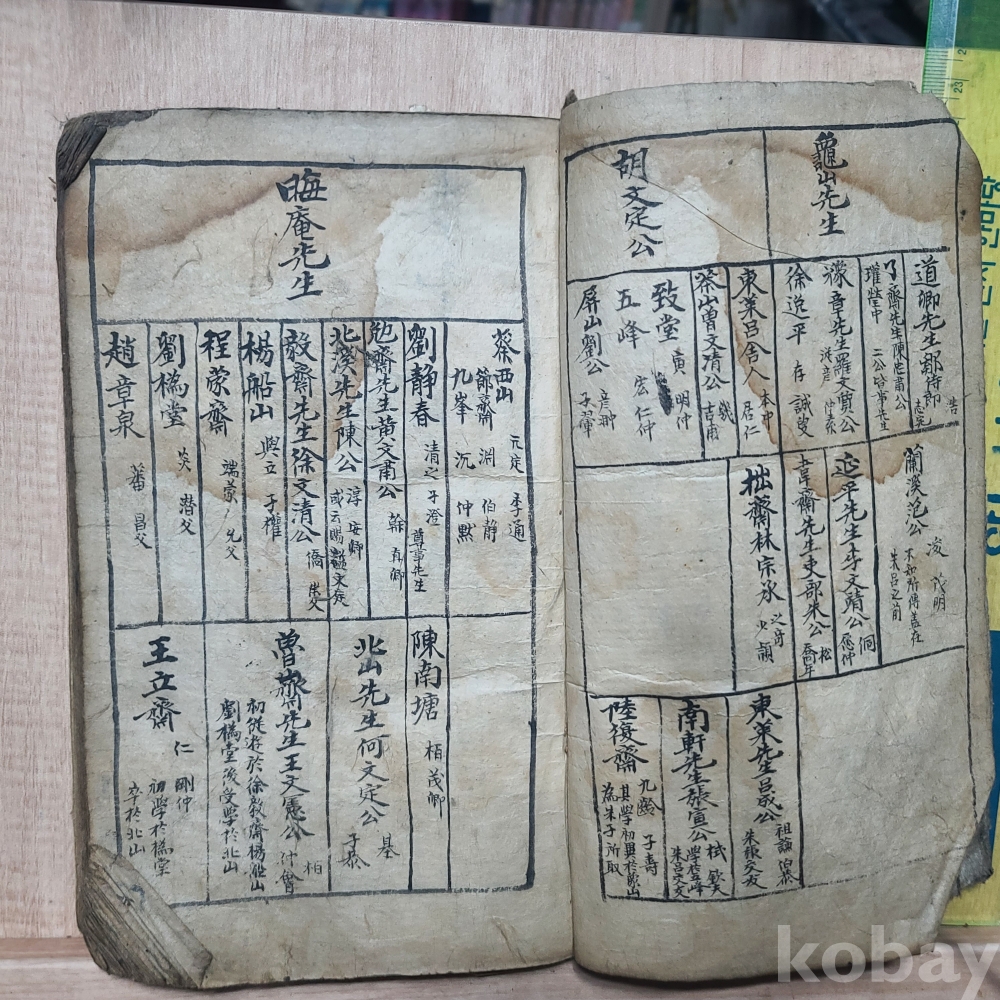 龜山先生
胡文定公
道卿先生鄒侍郎 浩 志完
了齋先生陳忠肅公
瓘瑩中 二公皆常先生
豫章先生羅文質公
從彦 仲素
徐逸平 存 誠叟
東莱呂舍人 本中 居仁
茶山曾文清公 幾 吉甫
致堂 寅 明仲
五峰 宏 仁仲
屏山劉公 彦冲 子翬
蘭溪范公 浚 茂明
不知所傳盖在
朱呂之前
延平先生李文靖公 侗 愿仲
韋齋先生吏部朱公 松 喬年
拙齋林宗丞 之奇 少穎
東莱先生呂成公 祖謙 伯恭
朱張交友
南軒先生張宣公 栻 欽夫
學於五峰
朱呂交友
陸復齋 九齡 子壽
其學初異於象山
為朱子所取
晦庵先生
蔡西山 元定 季通
節齋 淵 伯静
九峯 沉 仲黙
劉静春 清之 子澄
尊事先生
勉齋先生黄文肅公 榦 直卿
北溪先生陳公 淳 安卿
或云賜謚文定
毅齋先生徐文清公 僑 崇父
楊船山 與立 子權
程蒙齋 端蒙 允父
劉撝堂 炎 潜父
趙章泉 蕃 昌父
陳南塘 栢 茂卿
北山先生何文定公 基
子恭
魯齋先生王文憲公 柏
仲會
初從遊於徐毅齋楊船山
劉撝堂後受學於北山
王立齋 仁 剛仲
初學於撝堂
卒於北山
kobay